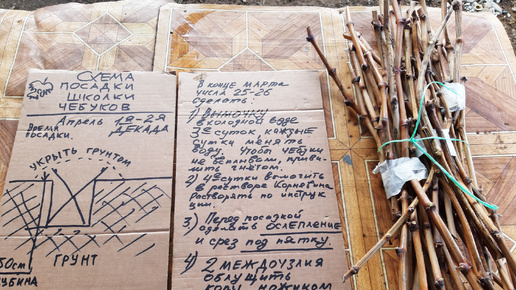 СХЕМА
ПОСАДКИ
ШКОЛКИ
ЧЕБУКОВ
Апрель 1я-2я
ДЕКАДА
Время
посадки.
УКРЫТЬ ГРУНТОМ
50см
ГЛУБИНА
ГРУНТ
В конце марта
числа 25-26
сделать:
1) Вымочку
в холодной воде
3е суток, каждые
сутки менять
воду. Чтоб чебуки
не всплывали,
гнётом.
2) 4е сутки вымочить
в растворе Корневина
Растворять по инструк
ции.
3) Перед посадкой
сделать ОСЛЕПЛЕНИЕ
и срез под пятку.
4) 2 МЕЖДОУЗЛИЯ
ОБЛУЩИТЬ
кору ножиком